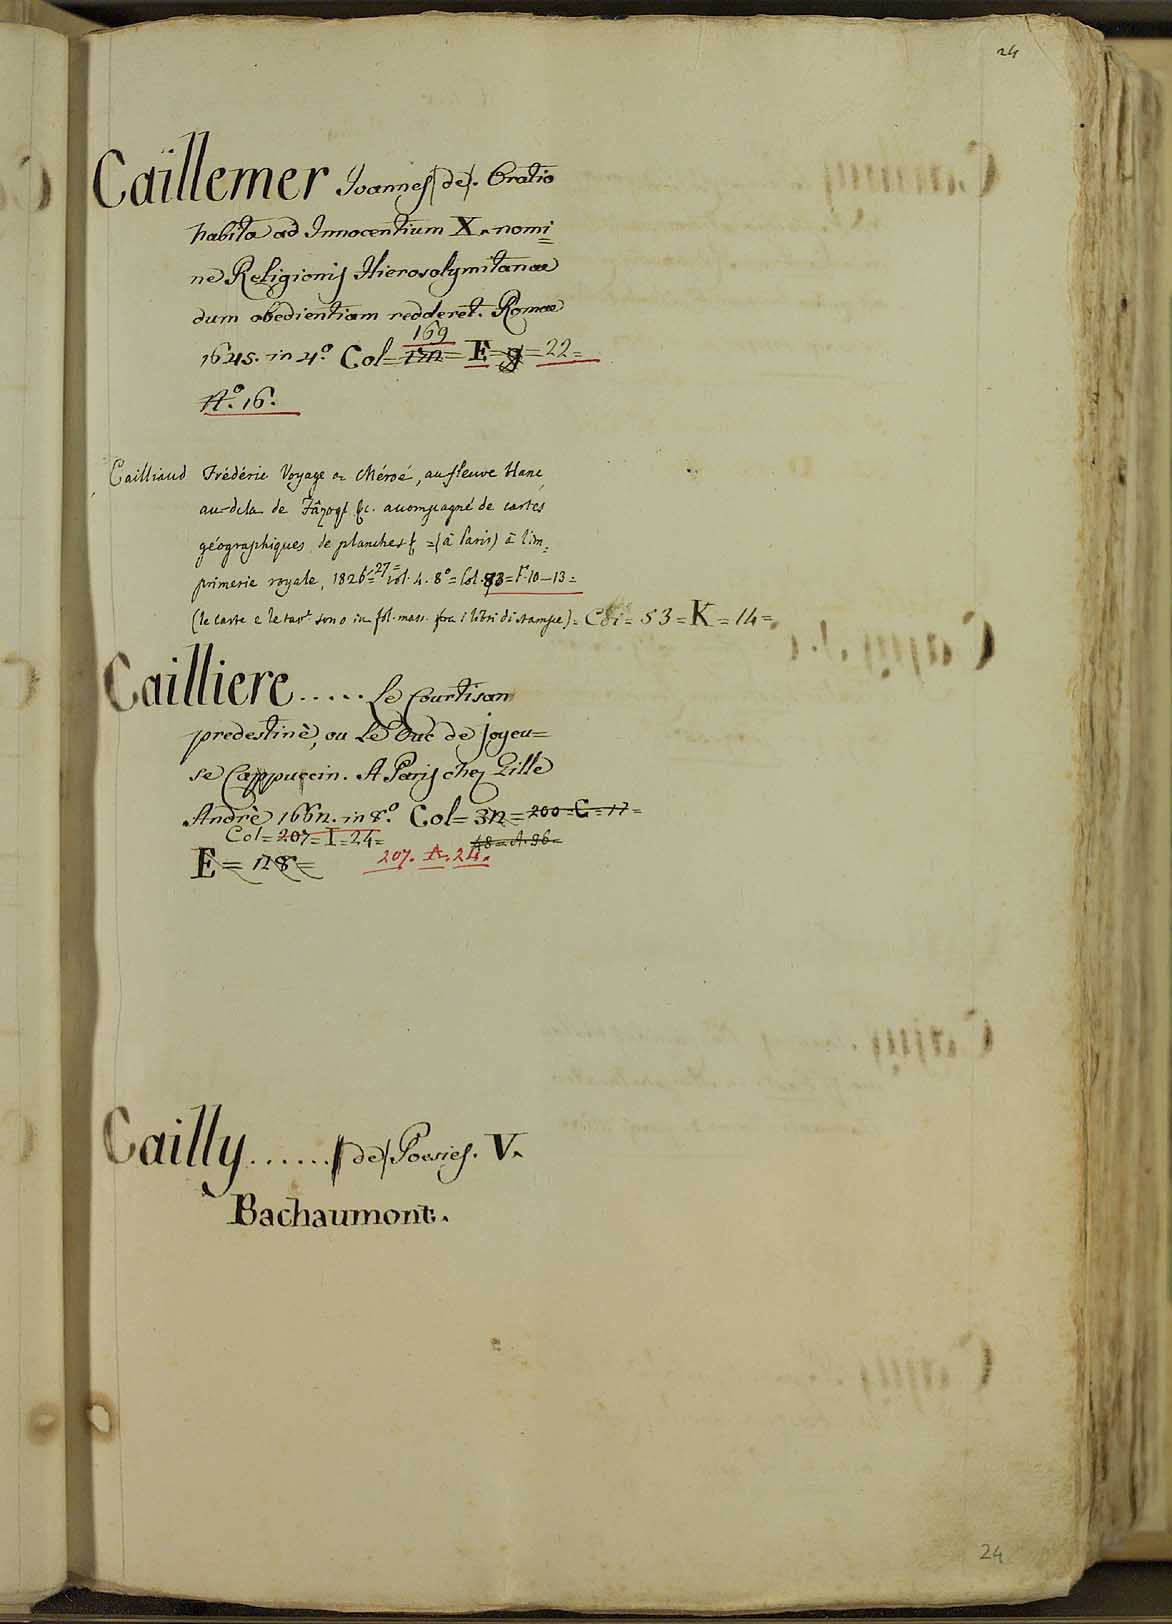 24
Caillemer Joannes (de). Oratio
habita ad Innocentium X. nomi=
ne Religionis Hierosolymitanae
dum obedientiam redderet. Romae
169
1645. in 4.º Col= = E = 9 = 22=
Nº. 16.
Cailliaud Frédéric Voyage a Méroé, au fleuve blanc,
au-dela de Fâzoql &c. accompagné de cartes
géographiques, de planches & =(à Paris) à l'im=
primerie royale, 1826=27= vol. 4. 8º = Col. 93 = F. 10-13=
(le carte e le tavᵉ sono in fol. mass. fra i libri di stampe)= Col= 53 = K = 14=
Cailliere ..... Le Courtisan
predestinè, ou Le Duc de joyeu=
se Cappuccin. A Paris chez Gille
Andrè 1662. in 8.º Col= 32= 200=C=17=
Col= 207= I= 24= 48=A.96=
E= 128= 207. A. 24.
Cailly ...... (de) Poesies. V.
Bachaumont.
24